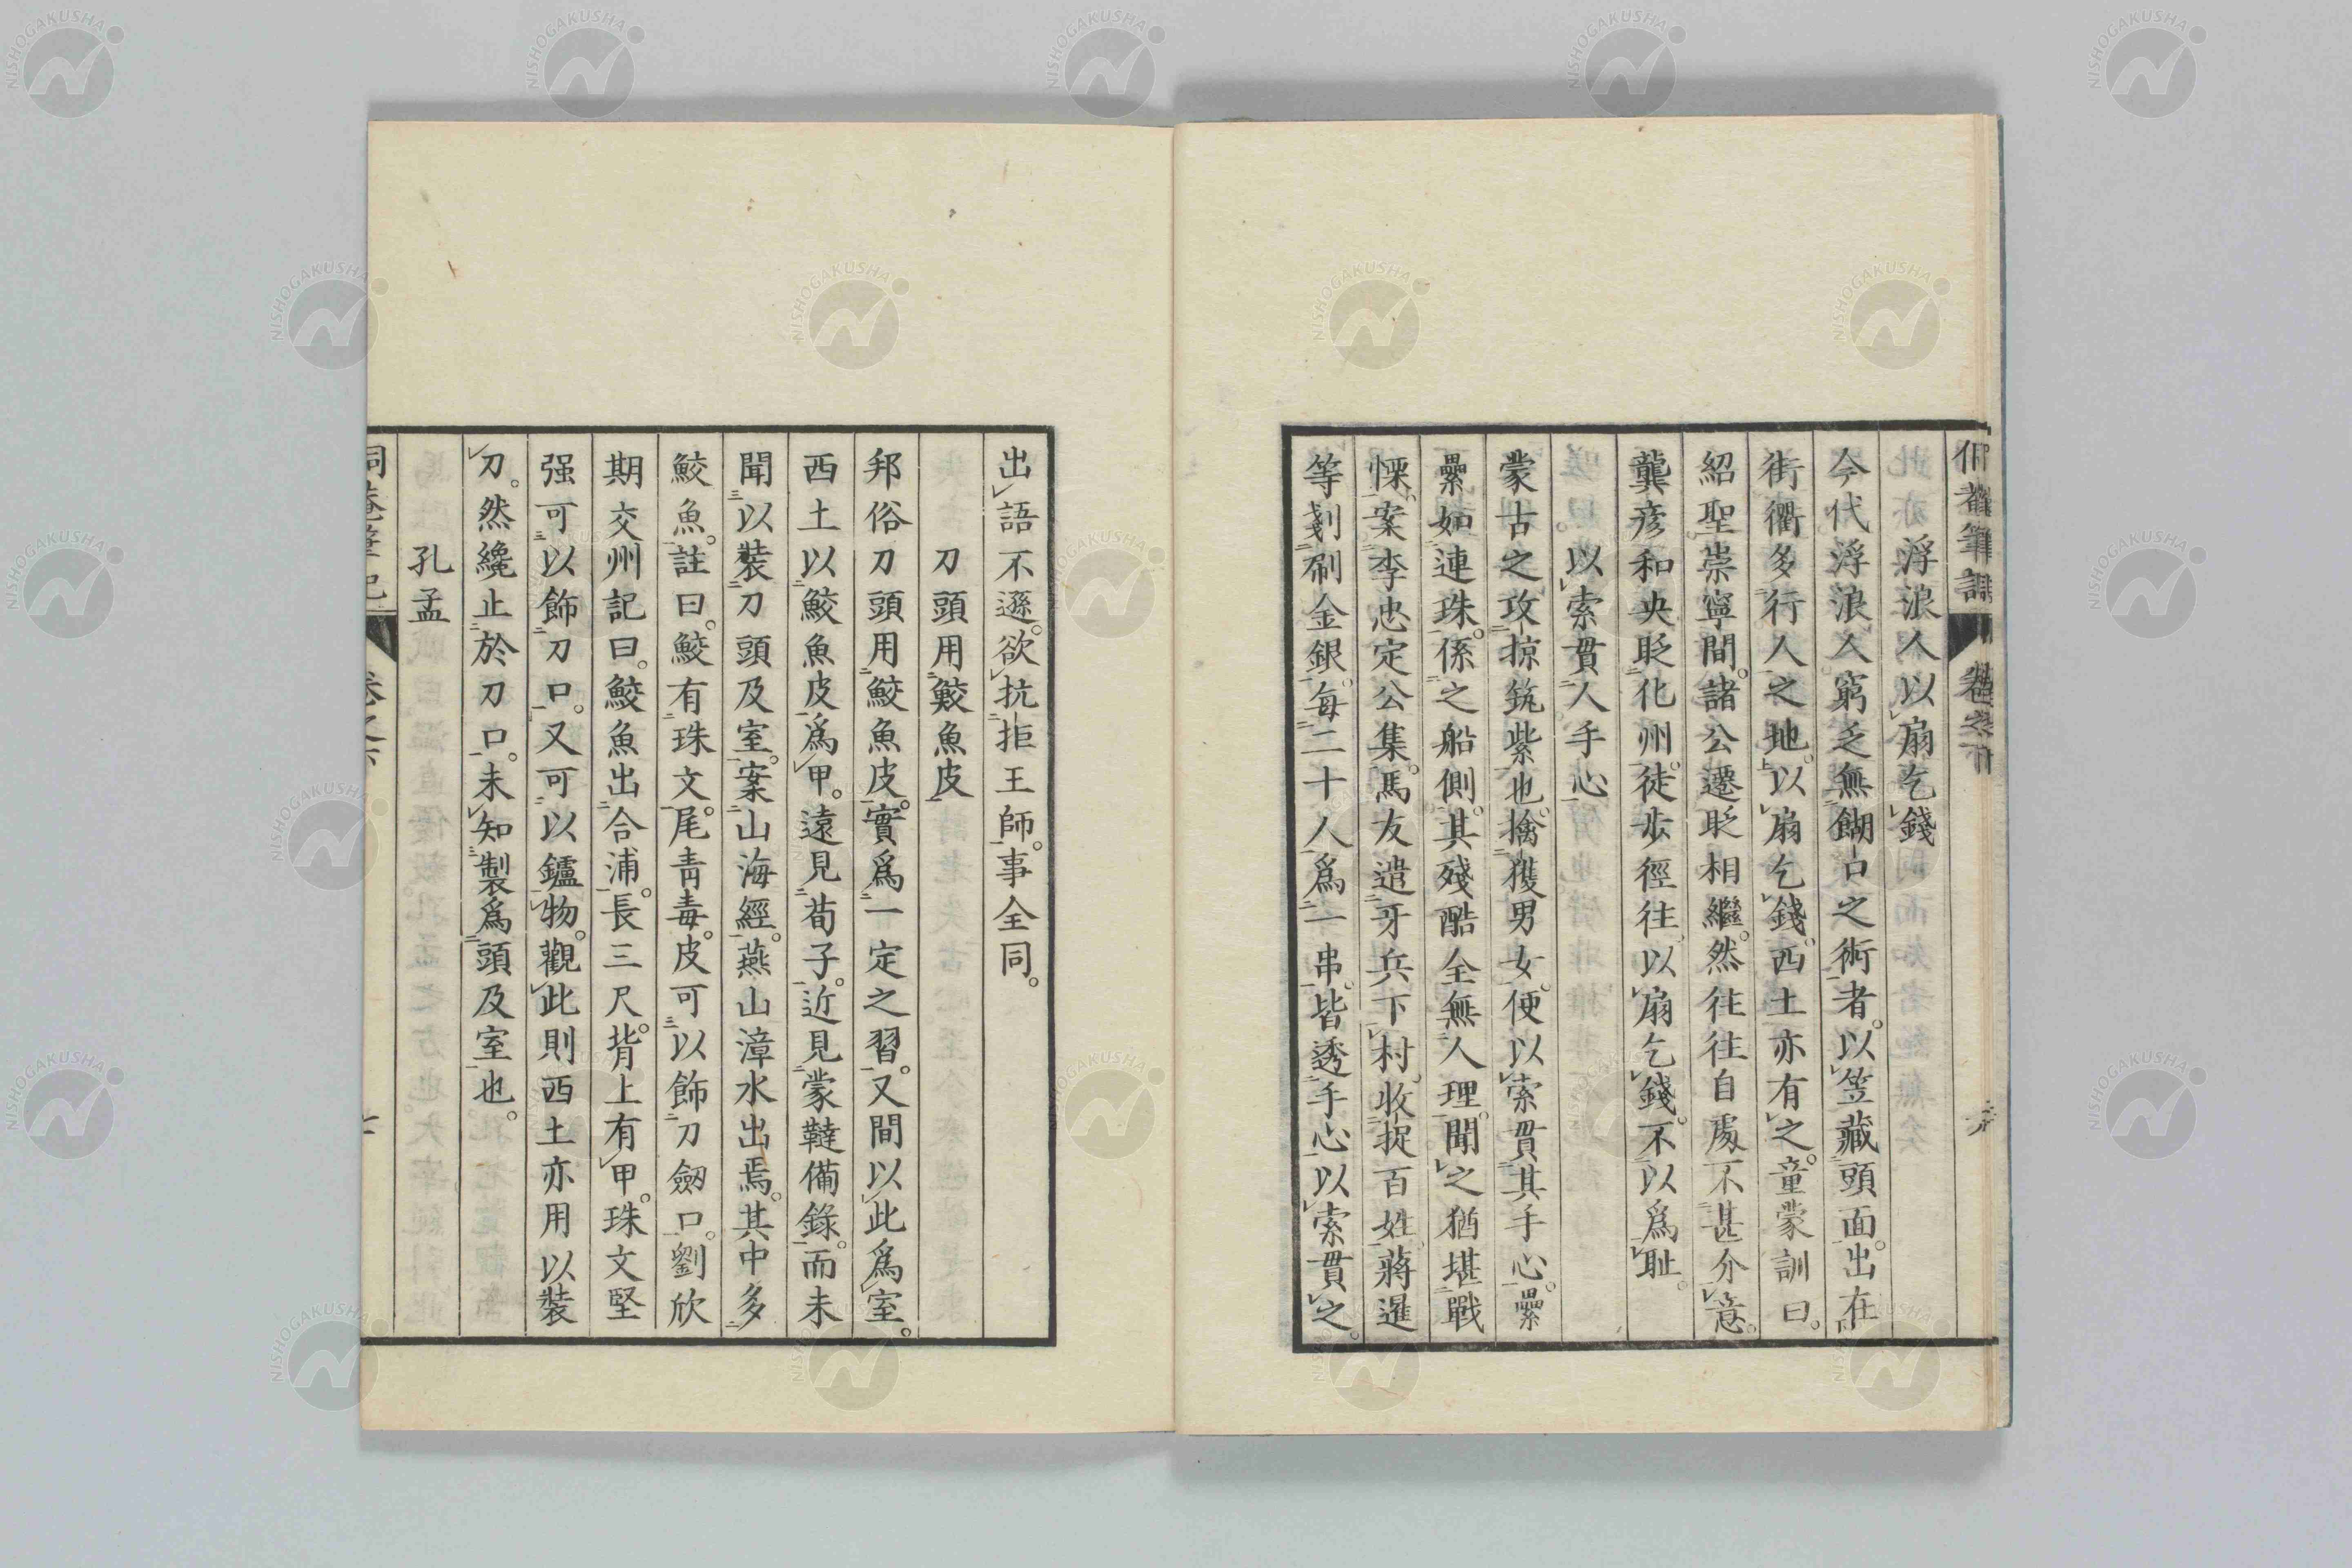 浮浪人以扇乞錢
今代浮浪人窮乏無餬口之術者。以笠藏頭面。出在
街衢多行人之地。以扇乞錢。西土亦有之。童蒙訓曰。
紹聖崇寧間。諸公遷貶相繼。然往往自處不甚介意。
龔彦和夬貶化州。徒步徑往。以扇乞錢。不以爲耻。
以索貫人手心
蒙古之攻掠筑紫也。擒獲男女。便以索貫其手心。纍
纍如連珠。係之船側。其殘酷全無人理。聞之猶堪戰
慄。案李忠定公集。馬友遣牙兵下村。收捉百姓。蔣暹
等剗刷金銀。每二十人爲一串。皆透手心。以索貫之。
出語不遜。欲抗拒王師。事全同。
刀頭用鮫魚皮
邦俗刀頭用鮫魚皮。實爲一定之習。又間以此爲室。
西土以鮫魚皮爲甲。遠見荀子。近見蒙韃備錄。而未
聞以裝刀頭及室。案山海經。燕山漳水出焉。其中多
鮫魚。註曰。鮫有珠文。尾靑毒。皮可以飾刀劔口。劉欣
期交州記曰。鮫魚出合浦。長三尺。背上有甲。珠文堅
强可以飾刀口。又可以鑢物。觀此則西土亦用以裝
刀。然纔止於刀口。未知製爲頭及室也。
孔孟